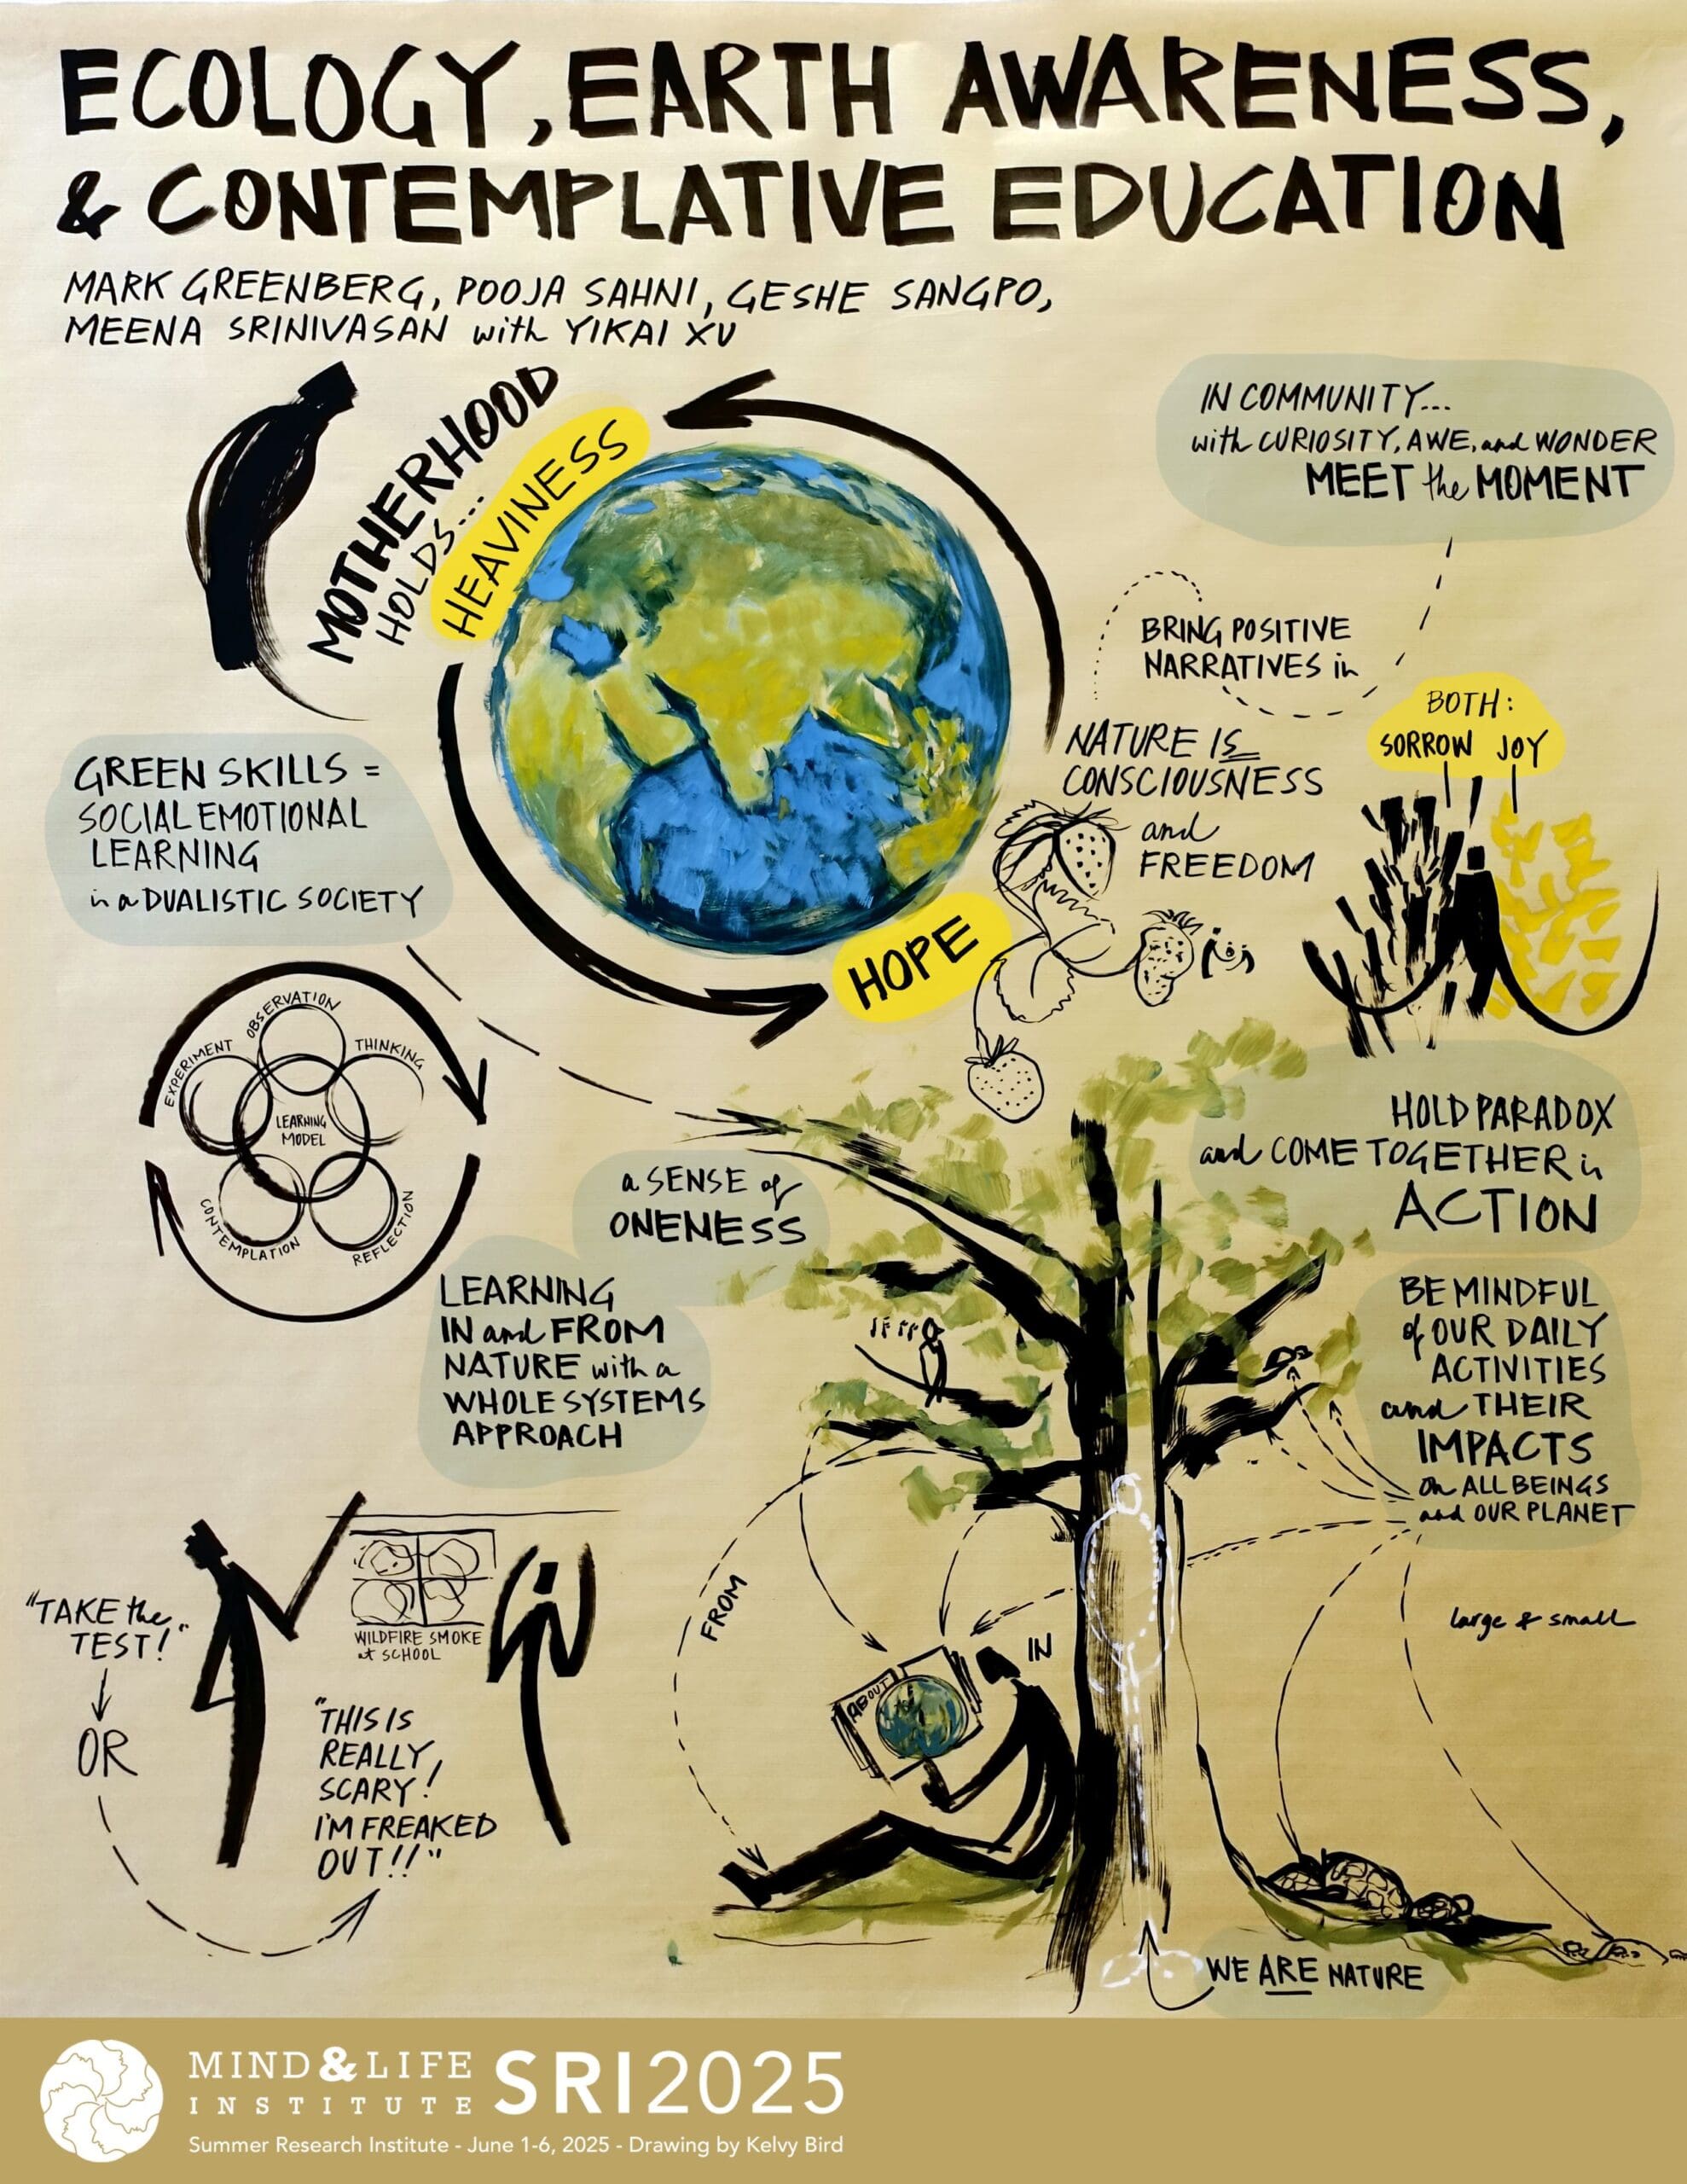 ECOLOGY, EARTH AWARENESS,
& CONTEMPLATIVE EDUCATION
MARK GREENBERG, POOJA SAHNI, GESHE SANGPO,
MEENA SRINIVASAN with YIKAI XU
MOTHERHOOD
HOLDS...
HEAVINESS
HOPE
IN COMMUNITY...
with CURIOSITY, AWE, and WONDER
MEET the MOMENT
BRING POSITIVE
NARRATIVES in
BOTH:
SORROW JOY
NATURE IS
CONSCIOUSNESS
and
FREEDOM
GREEN SKILLS =
SOCIAL EMOTIONAL
LEARNING
in a DUALISTIC SOCIETY
OBSERVATION
EXPERIMENT
THINKING
LEARNING
MODEL
CONTEMPLATION
REFLECTION
HOLD PARADOX
and COME TOGETHER in
ACTION
a SENSE of
ONENESS
LEARNING
IN and FROM
NATURE with a
WHOLE SYSTEMS
APPROACH
BE MINDFUL
of OUR DAILY
ACTIVITIES
and THEIR
IMPACTS
on ALL BEINGS
and OUR PLANET
large & small
"TAKE the
TEST!"
OR
WILDFIRE SMOKE
at SCHOOL
"THIS IS
REALLY
SCARY!
I'M FREAKED
OUT!!"
FROM
IN
ABOUT
WE ARE NATURE
MIND&LIFE
INSTITUTE
SRI2025
Summer Research Institute - June 1-6, 2025 - Drawing by Kelvy Bird